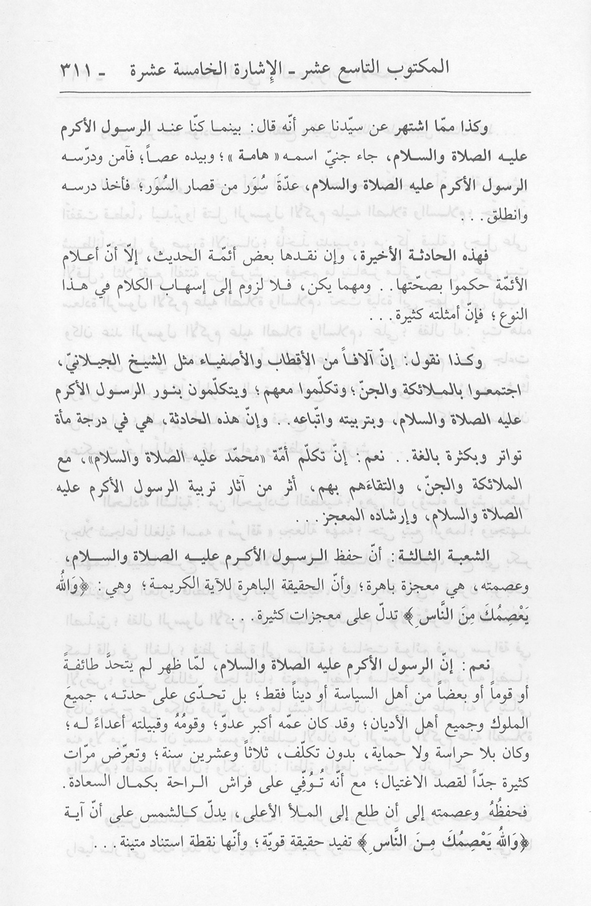 المكتوب التاسع عشر ـ الإشارة الخامسة عشرة ـ ٣١١
وكذا ممّا اشتهر عن سيّدنا عمر أنّه قال: بينمـا كنّا عنـد الرسـول الأكرم
عليـه الصلاة والسـلام، جاء جنيّ اسمـه «هامـة»؛ وبيده عصـاً؛ فآمن ودرّسـه
الرسول الأكرم عليه الصلاة والسلام، عدّةَ سُوَر من قصار السُوَر؛ فأخذ درسـه
وانطلق...
فهذه الحادثـة الأخيرة، وإن نقـدها بعض أئمّـة الحديث، إلّا أنّ أعلام
الأئمّة حكموا بصحّتها.. ومهما يكن، فـلا لزوم إلى إسهـاب الكلام في هـذا
النوع؛ فإنّ أمثلته كثيرة...
وكـذا نقول: إنّ آلافـاً من الأقطاب والأصفيـاء مثل الشيـخ الجيلانيّ،
اجتمعـوا بالمـلائكة والجنّ؛ وتكلّموا معهم؛ ويتكلّمون بنـور الرسـول الأكرم
عليه الصلاة والسلام، وبتربيته واتّباعه.. وإنّ هذه الحادثة، هي في درجة مأة
تواتر وبكثرة بالغة.. نعم: إنّ تكلّم أمّة «محمّد عليه الصلاة والسلام»، مع
الملائكة والجنّ، والتقاءَهم بهم، أثر من آثار تربية الرسول الأكرم عليه
الصلاة والسلام، وإرشاده المعجز...
الشعبـة الثـالثـة: أنّ حفظ الـرسـول الأكـرم عليـه الصـلاة والسـلام،
وعصمته، هي معجزة باهرة؛ وأنّ الحقيقة الباهرة للآية الكريمـة؛ وهي: ﴿وَاللهُ
يَعْصِمُكَ مِنَ النَّاسِ﴾ تدلّ على معجزات كثيرة...
نعم: إنّ الرسول الأكرم عليه الصلاة والسلام، لمّا ظهر لم يتحدَّ طائفـةً
أو قوماً أو بعضاً من أهل السياسة أو دينا فقط؛ بل تحـدّى على حدتـه، جميعَ
الملوك وجميع أهل الأديان؛ وقد كان عمّه أكبر عدوّ؛ وقومُهُ وقبيلته أعداءً لـه؛
وكان بلا حراسة ولا حماية، بدون تكلّف، ثلاثاً وعشرين سنة؛ وتعرّض مرّات
كثيرة جدّاً لقصد الاغتيال؛ مع أنّه تُـوُفِّي على فراش الـراحة بكمال السعادة.
فحفظُهُ وعصمته إلى أن طلع إلى المـلأ الأعلى، يدلّ كـالشمس على أنّ آيـة
﴿وَاللهُ يَعْصِمُكَ مِـنَ النَّاسِ﴾ تفيد حقيقة قويّة؛ وأنّها نقطة استناد متينة...